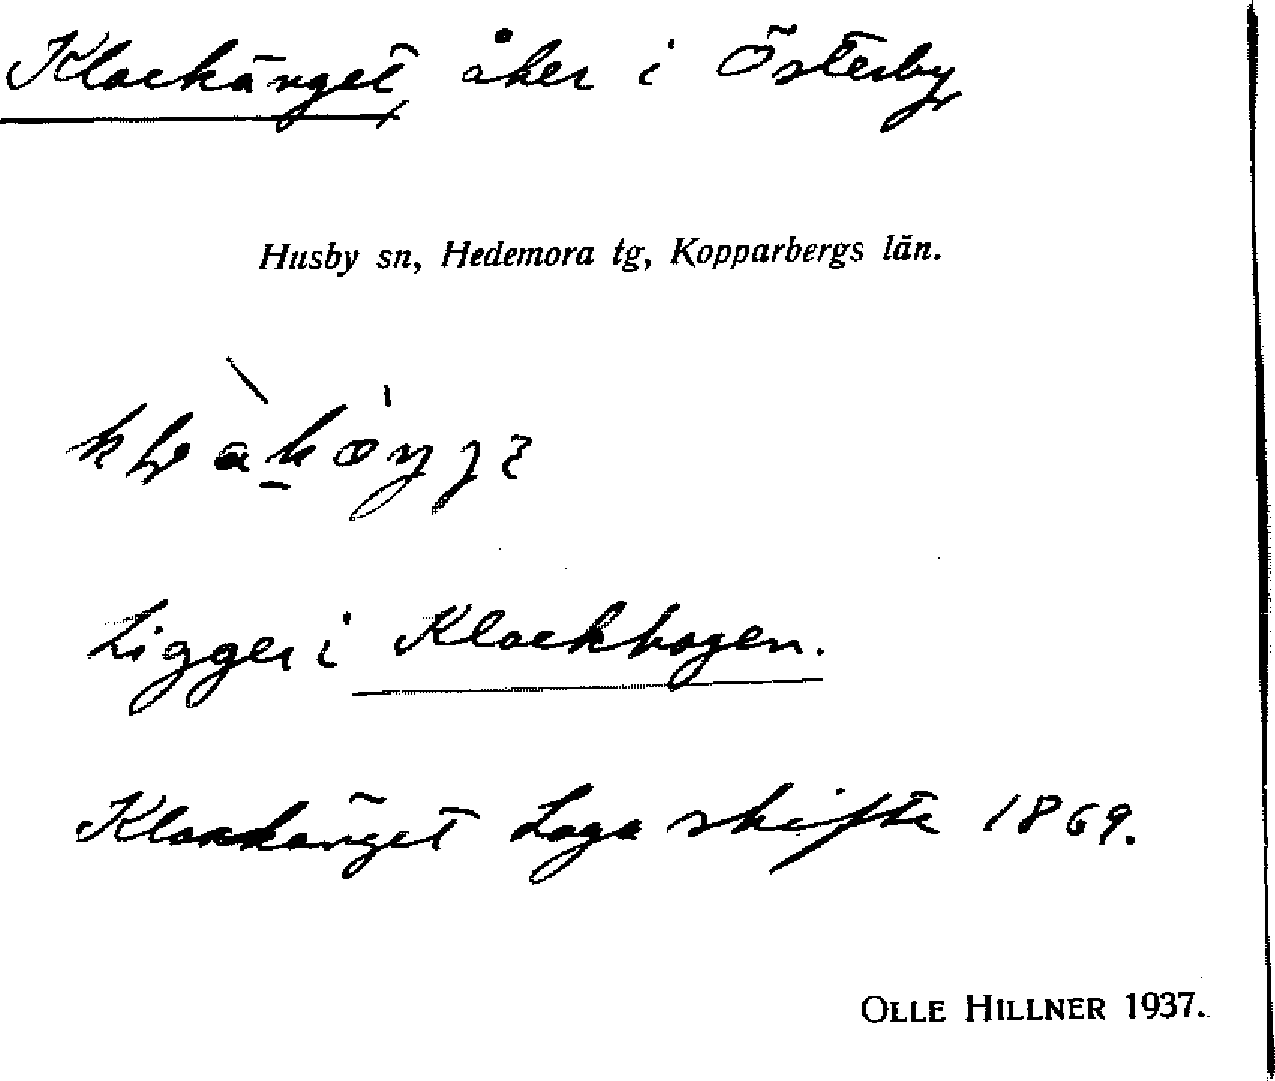 Klockänget åker i Österby
Husby sn, Hedemora tg, Kopparbergs län.
Ligger i Klockhagen.
Klockänget Laga skifte 1869.
OLLE HILLNER 1937.